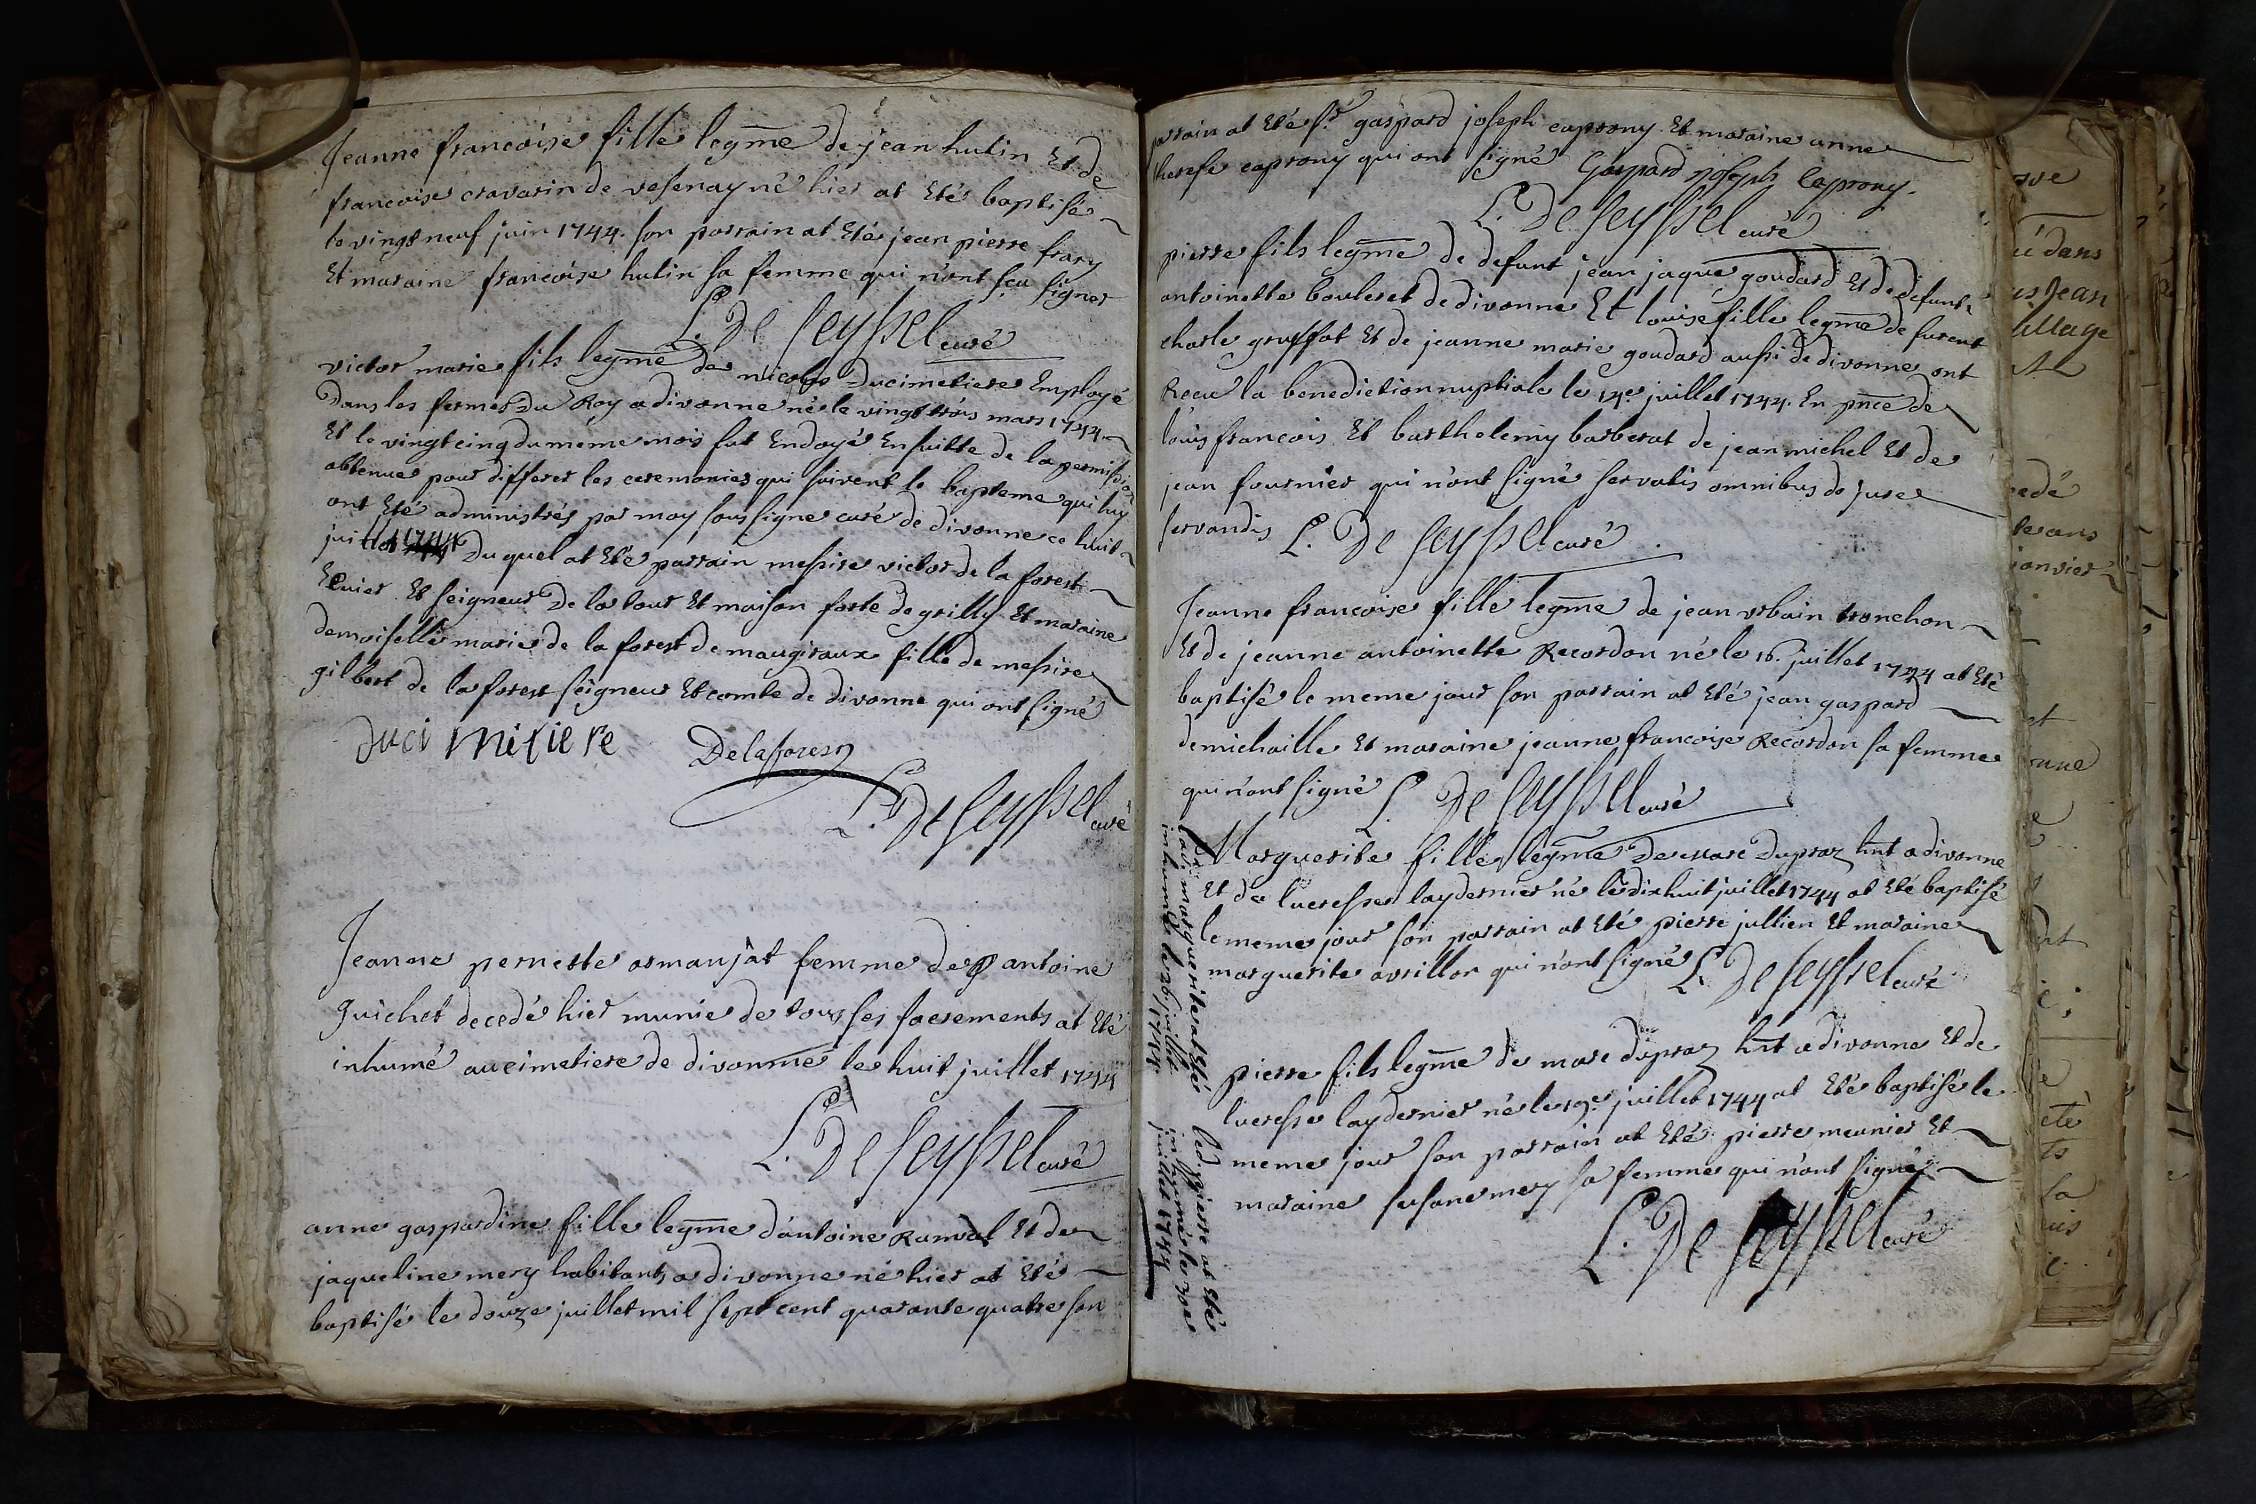 Jeanne francoise fille legme de jean hutin Et de
francoise cravarin de vesenay né hier at Eté baptisé
le vingt neuf juin 1744. son parrain at Eté jean pierre frary
Et maraine francoise hutin sa femme qui n'ont sçu signer
L. De Seyssel curé
victor marie fils legme de nicolas Ducimetiere Employé
Dans les fermes Du Roy a divonne né le vingt trois mars 1744
Et le vingt cinq du meme mois fut Endoyé Ensuitte de la permission
obtenue pour differer les ceremonies qui suivent le bapteme qui luy
ont Eté administrés par moy soussigne curé de divonne ce huit
juillet 1744 Du quel at Eté parrain messire victor de la forest
Ecuier Et seigneur De la tour Et maison forte de grilly Et maraine
demoiselle marie de la forest de maugiraux fille de messire
gilbert de la forest seigneur Et comte de divonne qui ont signé
Ducimitiere Delaforest
L. De Seyssel curé
Jeanne pernette armanjat femme de antoine
guichet decedé hier munie de tous ses sacrements at Eté
inhumé au cimetiere de divonne le huit juillet 1744
L. De Seyssel curé
anne gaspardine fille legme d'antoine Ramel Et de
jaqueline mery habitants a divonne né hier at Eté
baptisé le douze juillet mil sept cent quarante quatre son
parrain at Eté sr gaspard joseph caprony Et maraine anne
therese caprony qui ont signé Gaspard joseph Caprony.
L. De Seyssel curé
pierre fils legme de defunt jean jaque goudard Et de defunte
antoinette bouleret de divonne Et louise fille legme de furent
charle gruffat Et de jeanne marie goudard aussi de divonne ont
Receu la benediction nuptiale le 14e juillet 1744. En pnce de
loüis francois Et barthelemy barberat de jean michel Et de
jean fournier qui n'ont signé servatis omnibus de jure
servandis L. De Seyssel curé
Jeanne francoise fille legme de jean urbain tronchon
Et de jeanne antoinette Recordon né le 16. juillet 1744 at Eté
baptisé le meme jour son parrain at Eté jean gaspard
demichaille Et maraine jeanne francoise Recordon sa femme
qui n'ont signé L. De Seyssel curé
Marguerite fille legme De marc Dupraz hnt a divonne
Et de lucresse laydernier né le dixhuit juillet 1744 at Eté baptisé
le meme jour son parrain at Eté pierre jullien Et maraine
marguerite avrillon qui n'ont signé L. De Seyssel curé
lad. marguerite at Eté
inhumé le 26 juillet
1744
pierre fils legme de marc dupraz hnt a divonne Et de
lucresse laydernier né le 19e juillet 1744 at Eté baptisé le
meme jour son parrain at Eté pierre meunier Et
maraine susane mery sa femme qui n'ont signé
L. De Seyssel curé
led. pierre at Eté
inhumé le 30e
juillet 1744